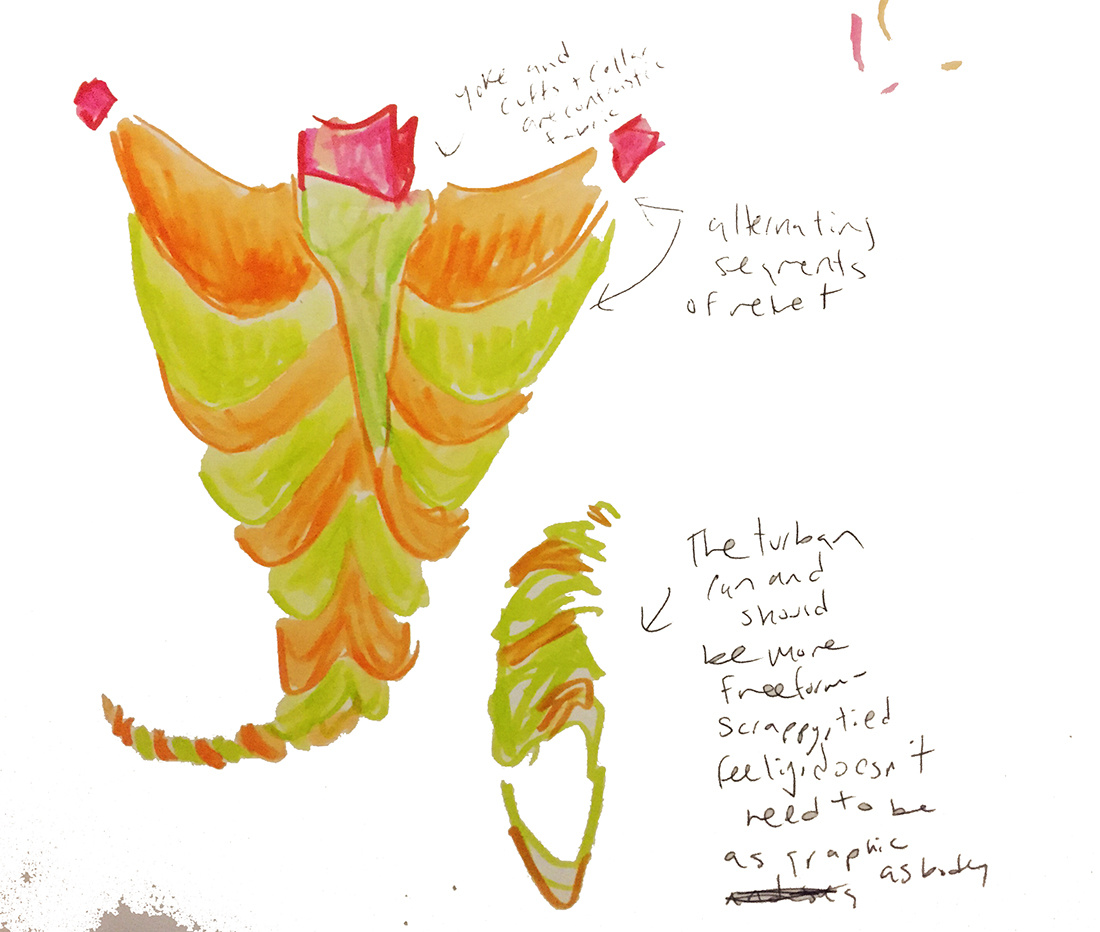 yoke and
cuffs + collar
are contrastic
fabric
alternating
segments
of velvet
The turban
can and
should
be more
freeform-
scrappy, tied
feeling, doesn't
need to be
as graphic
as body